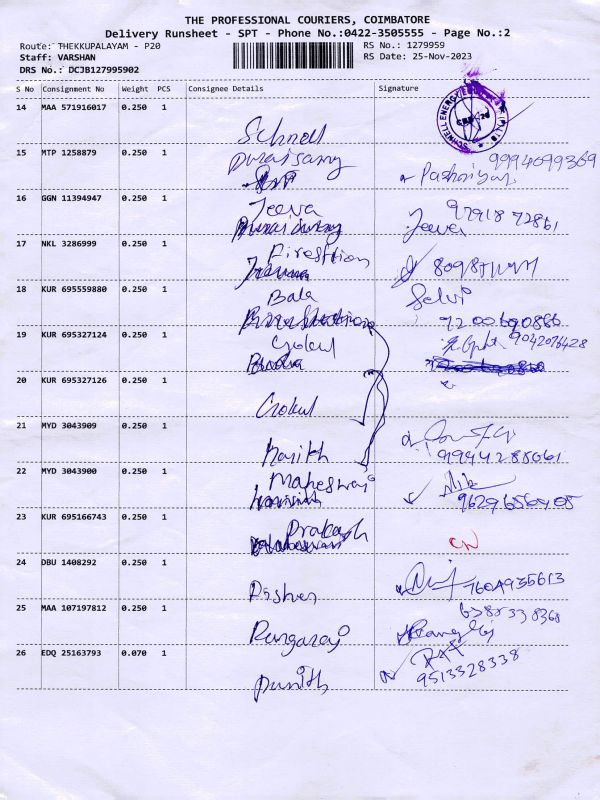 THE PROFESSIONAL COURIERS, COIMBATORE
Delivery Runsheet - SPT - Phone No.:0422-3505555 - Page No.:2
Route: THEKKUPALAYAM - P20
RS No.: 1279959
Staff: VARSHAN
RS Date: 25-Nov-2023
DRS No.: DCJB127995902
S No Consignment No Weight PCS Consignee Details Signature
14 MAA 571916017 0.250 1
Schnell
15 MTP 1258879 0.250 1
Duraisamy 9994099369
16 GGN 11394947 0.250 1
Jeeva Jeeva 97918 72861
17 NKL 3286999 0.250 1
18 KUR 695559880 0.250 1
Bala Selvi
9200690886
19 KUR 695327124 0.250 1
Gokul 9042076428
20 KUR 695327126 0.250 1
Gokul
21 MYD 3043909 0.250 1
Harith
22 MYD 3043900 0.250 1
Maheswari
9629656408
23 KUR 695166743 0.250 1
Prakash
CN
24 DBU 1408292 0.250 1
7604935613
25 MAA 107197812 0.250 1
Rangaraj
26 EDQ 25163793 0.070 1
Punith
9513328338